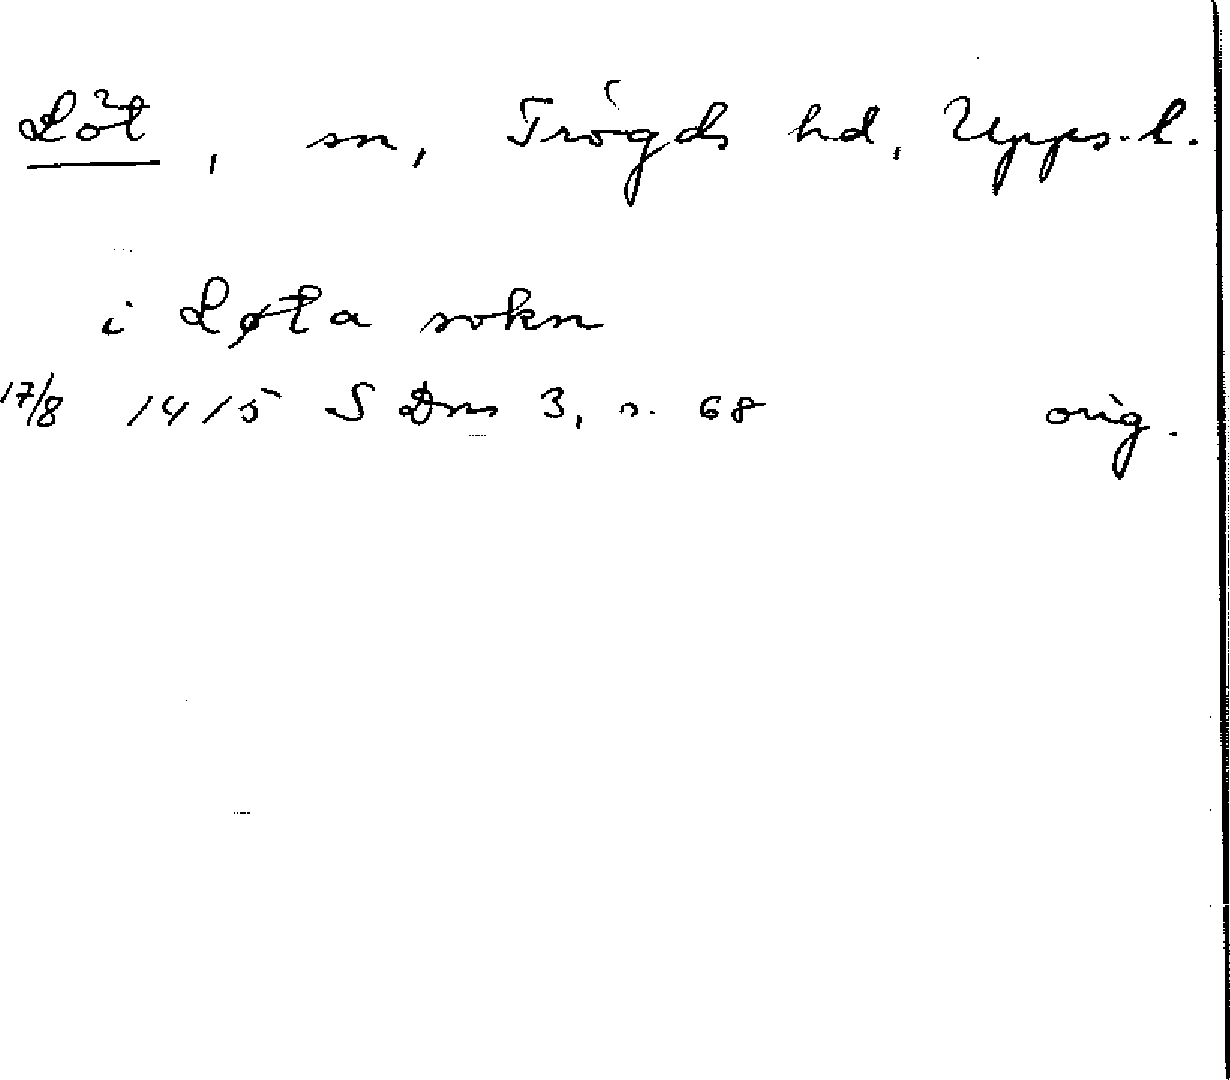 Löt, sn, Trögds hd, Upps. l.
i Løta sokn
17/8 1415 SDns 3, s. 68 orig.